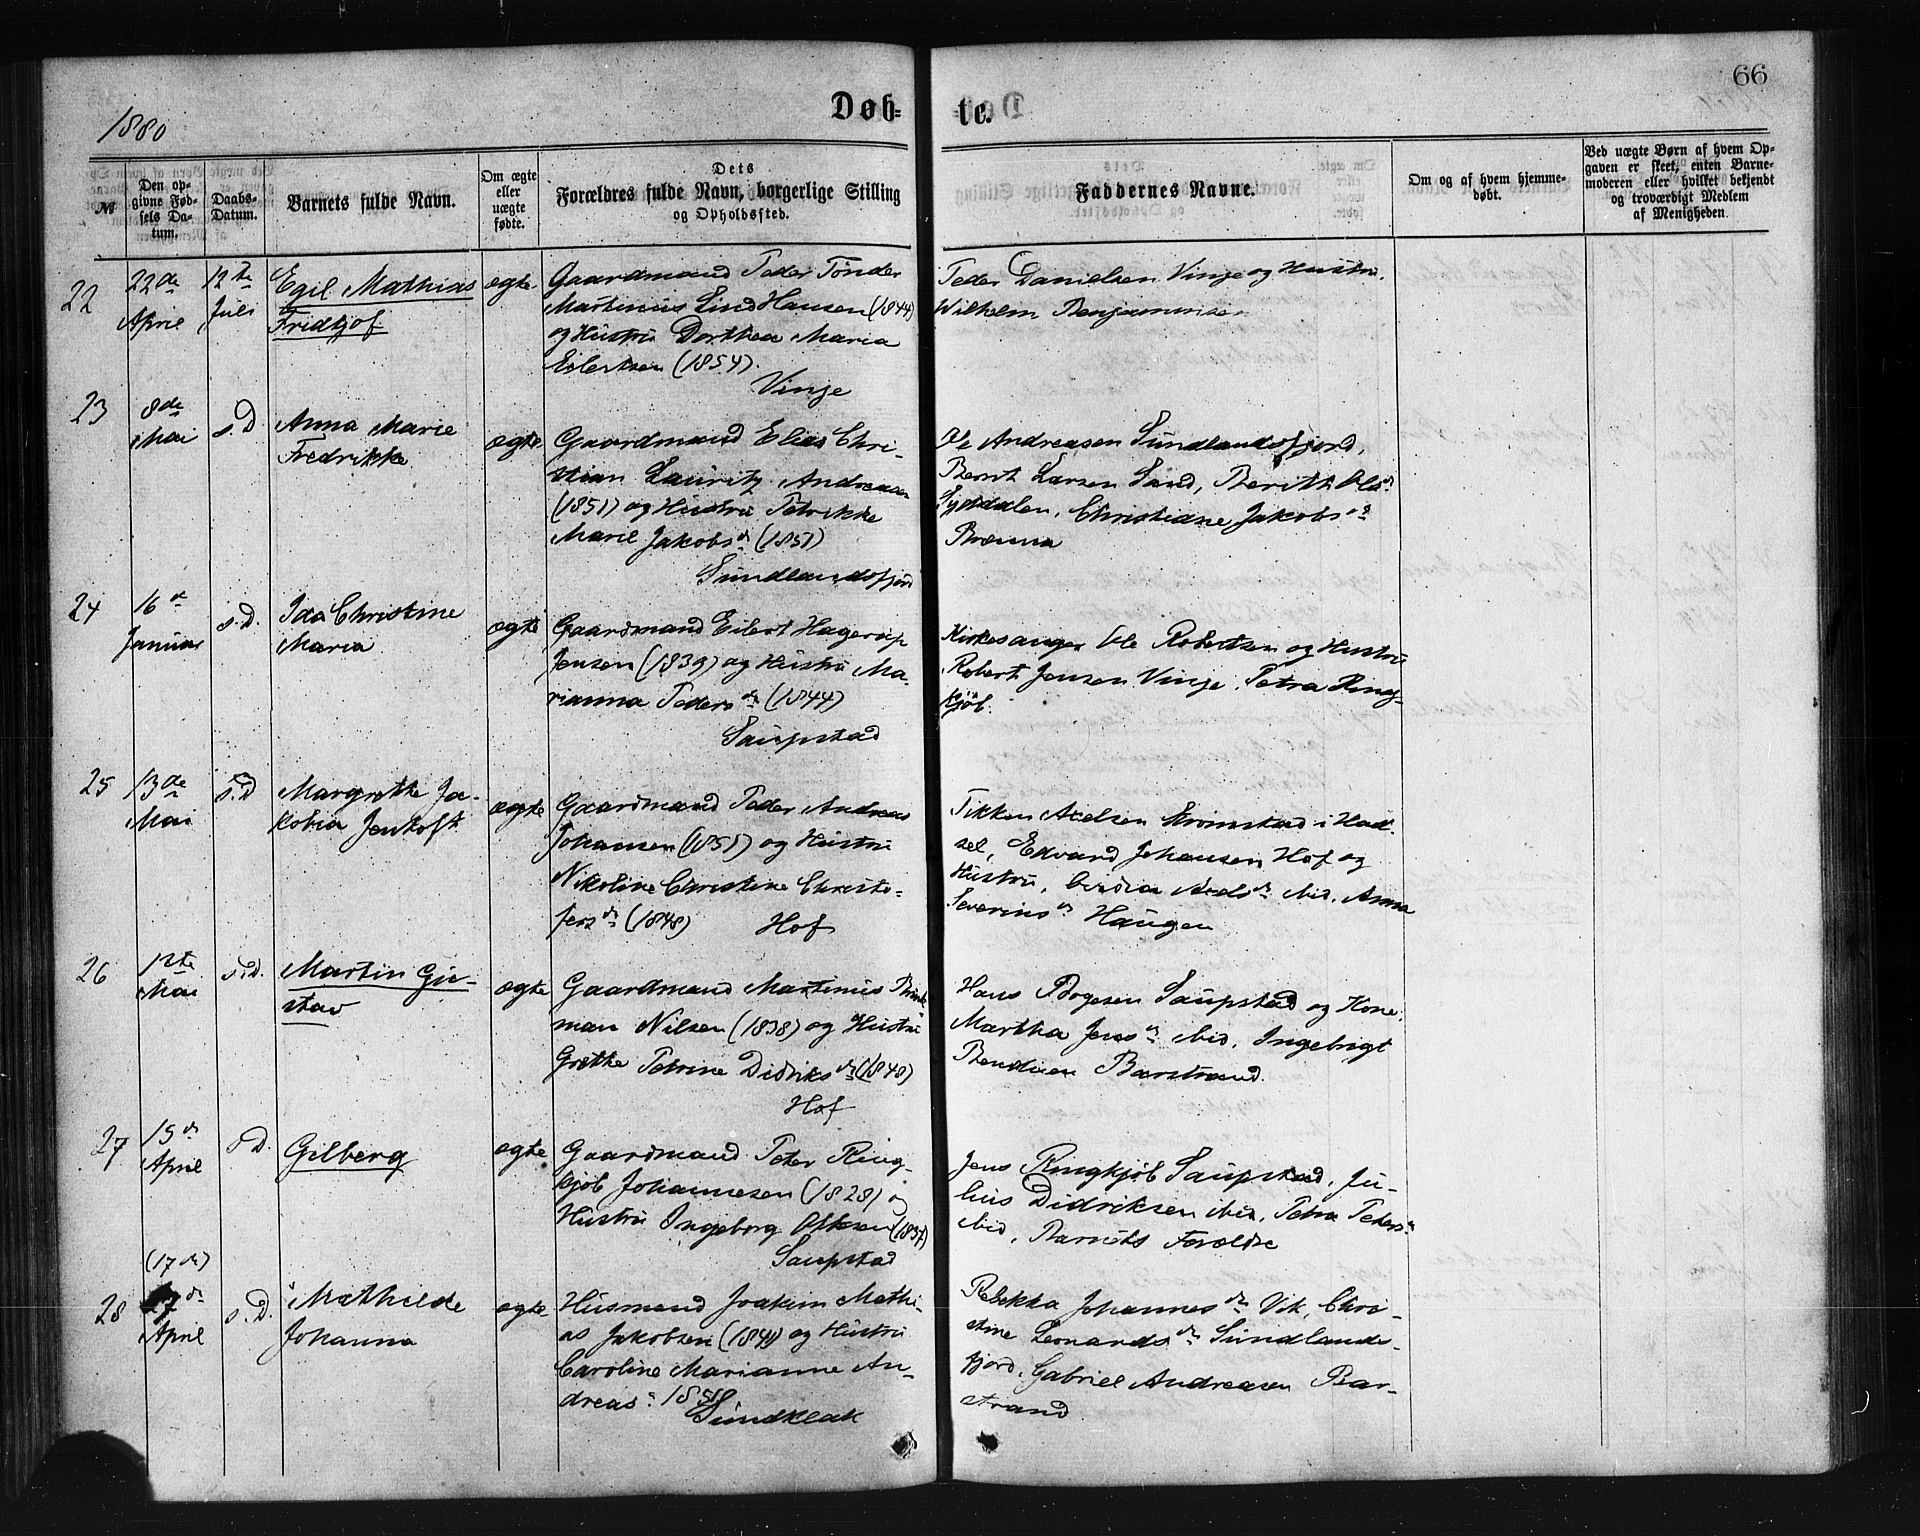 66
1880
Døb-
te.
№
Den op-
givne Fød-
sels Da-
tum.
Daabs-
Datum.
Barnets fulde Navn.
Om ægte
eller
uægte
fødte.
Dets
Forældres fulde Navn, borgerlige Stilling
og Opholdssted.
Faddernes Navne.
Om og af hvem hjemme-
døbt.
Ved uægte Børn af hvem Op-
gaven er skeet, enten Barne-
moderen eller hvilket bekjendt
og troværdigt Medlem
af Menigheden.
22
22de
April
12te
Juli
Egil Mathias
Fridtjof
ægte
Gaardmand Peder Tønder
Martinus Lind Hansen (1844)
og Hustru Dorthea Maria
Eilertsen (1854).
Vinje
Peder Danielsen Vinje og Hustru,
Wilhelm Benjaminsen
23
8de
Mai
s.D
Anna Marie
Fredrikke
ægte
Gaardmand Elias Chri-
stian Lauritz Andreasen
(1851) og Hustru Petrikke
Marie Jakobsdr (1851)
Sundlandsfjord
Ole Andreasen Sundlandsfjord,
Bernt Larsen Sund, Berith Olsdr
Syddalen, Christiane Jakobsdr
Brænna
24
16de
Januar
s.D.
Ida Christine
Maria
ægte
Gaardmand Eilert Hagerup
Jensen (1839) og Hustru Ma-
rianna Pedersdr (1844)
Saupstad
Kirkesanger Ole Robertsen og Hustru
Robert Jensen Vinje, Petra Ring-
kjøb.
25
13de
Mai
s.D
Margrethe Ja-
kobia Jentoft
ægte
Gaardmand Peder Andreas
Johansen (1851) og Hustru
Nikoline Christine Christo-
fersdr (1848)
Hof
Tikken Axelsen Strømstad i Had-
sel, Edvard Johansen Hof og
Hustru, Axelsdr ibid, Anna
Severinsdr Haugen
26
12te
Mai
s.D.
Martin Gu-
stav
ægte
Gaardmand Martinus Brink-
man Nilsen (1838) og Hustru
Grethe Petrine Didriksdr (1848)
Hof
Hans Bogesen Saupstad og Kone
Martha Jensdr ibid, Ingebrigt
Bendixen Barstrand.
27
15de
April
s.D.
Gilberg
ægte
Gaardmand Peter Ring-
kjøb Johannesen (1828) og
Hustru Ingeborg Ottesen (1837)
Saupstad
Jens Ringkjøb Saupstad, Ju-
lius Didriksen ibid, Petra Pedersdr
ibid, Barnets Forældre
28
(17de)
17de
April
s.D.
Mathilde
Johanna
ægte
Husmand Joakim Mathi-
as Jakobsen (1841) og Hustru
Caroline Marianne An-
dreas
Sundklak
Rebekka Johannesdr Vik, Chri-
stine Leonardsdr Sundlands-
fjord, Gabriel Andreasen Bar-
strand